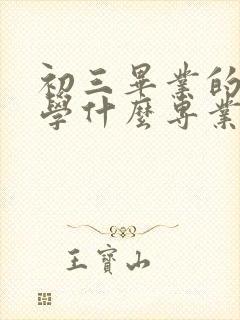 初三畢業的
學什麼專業
王寶山